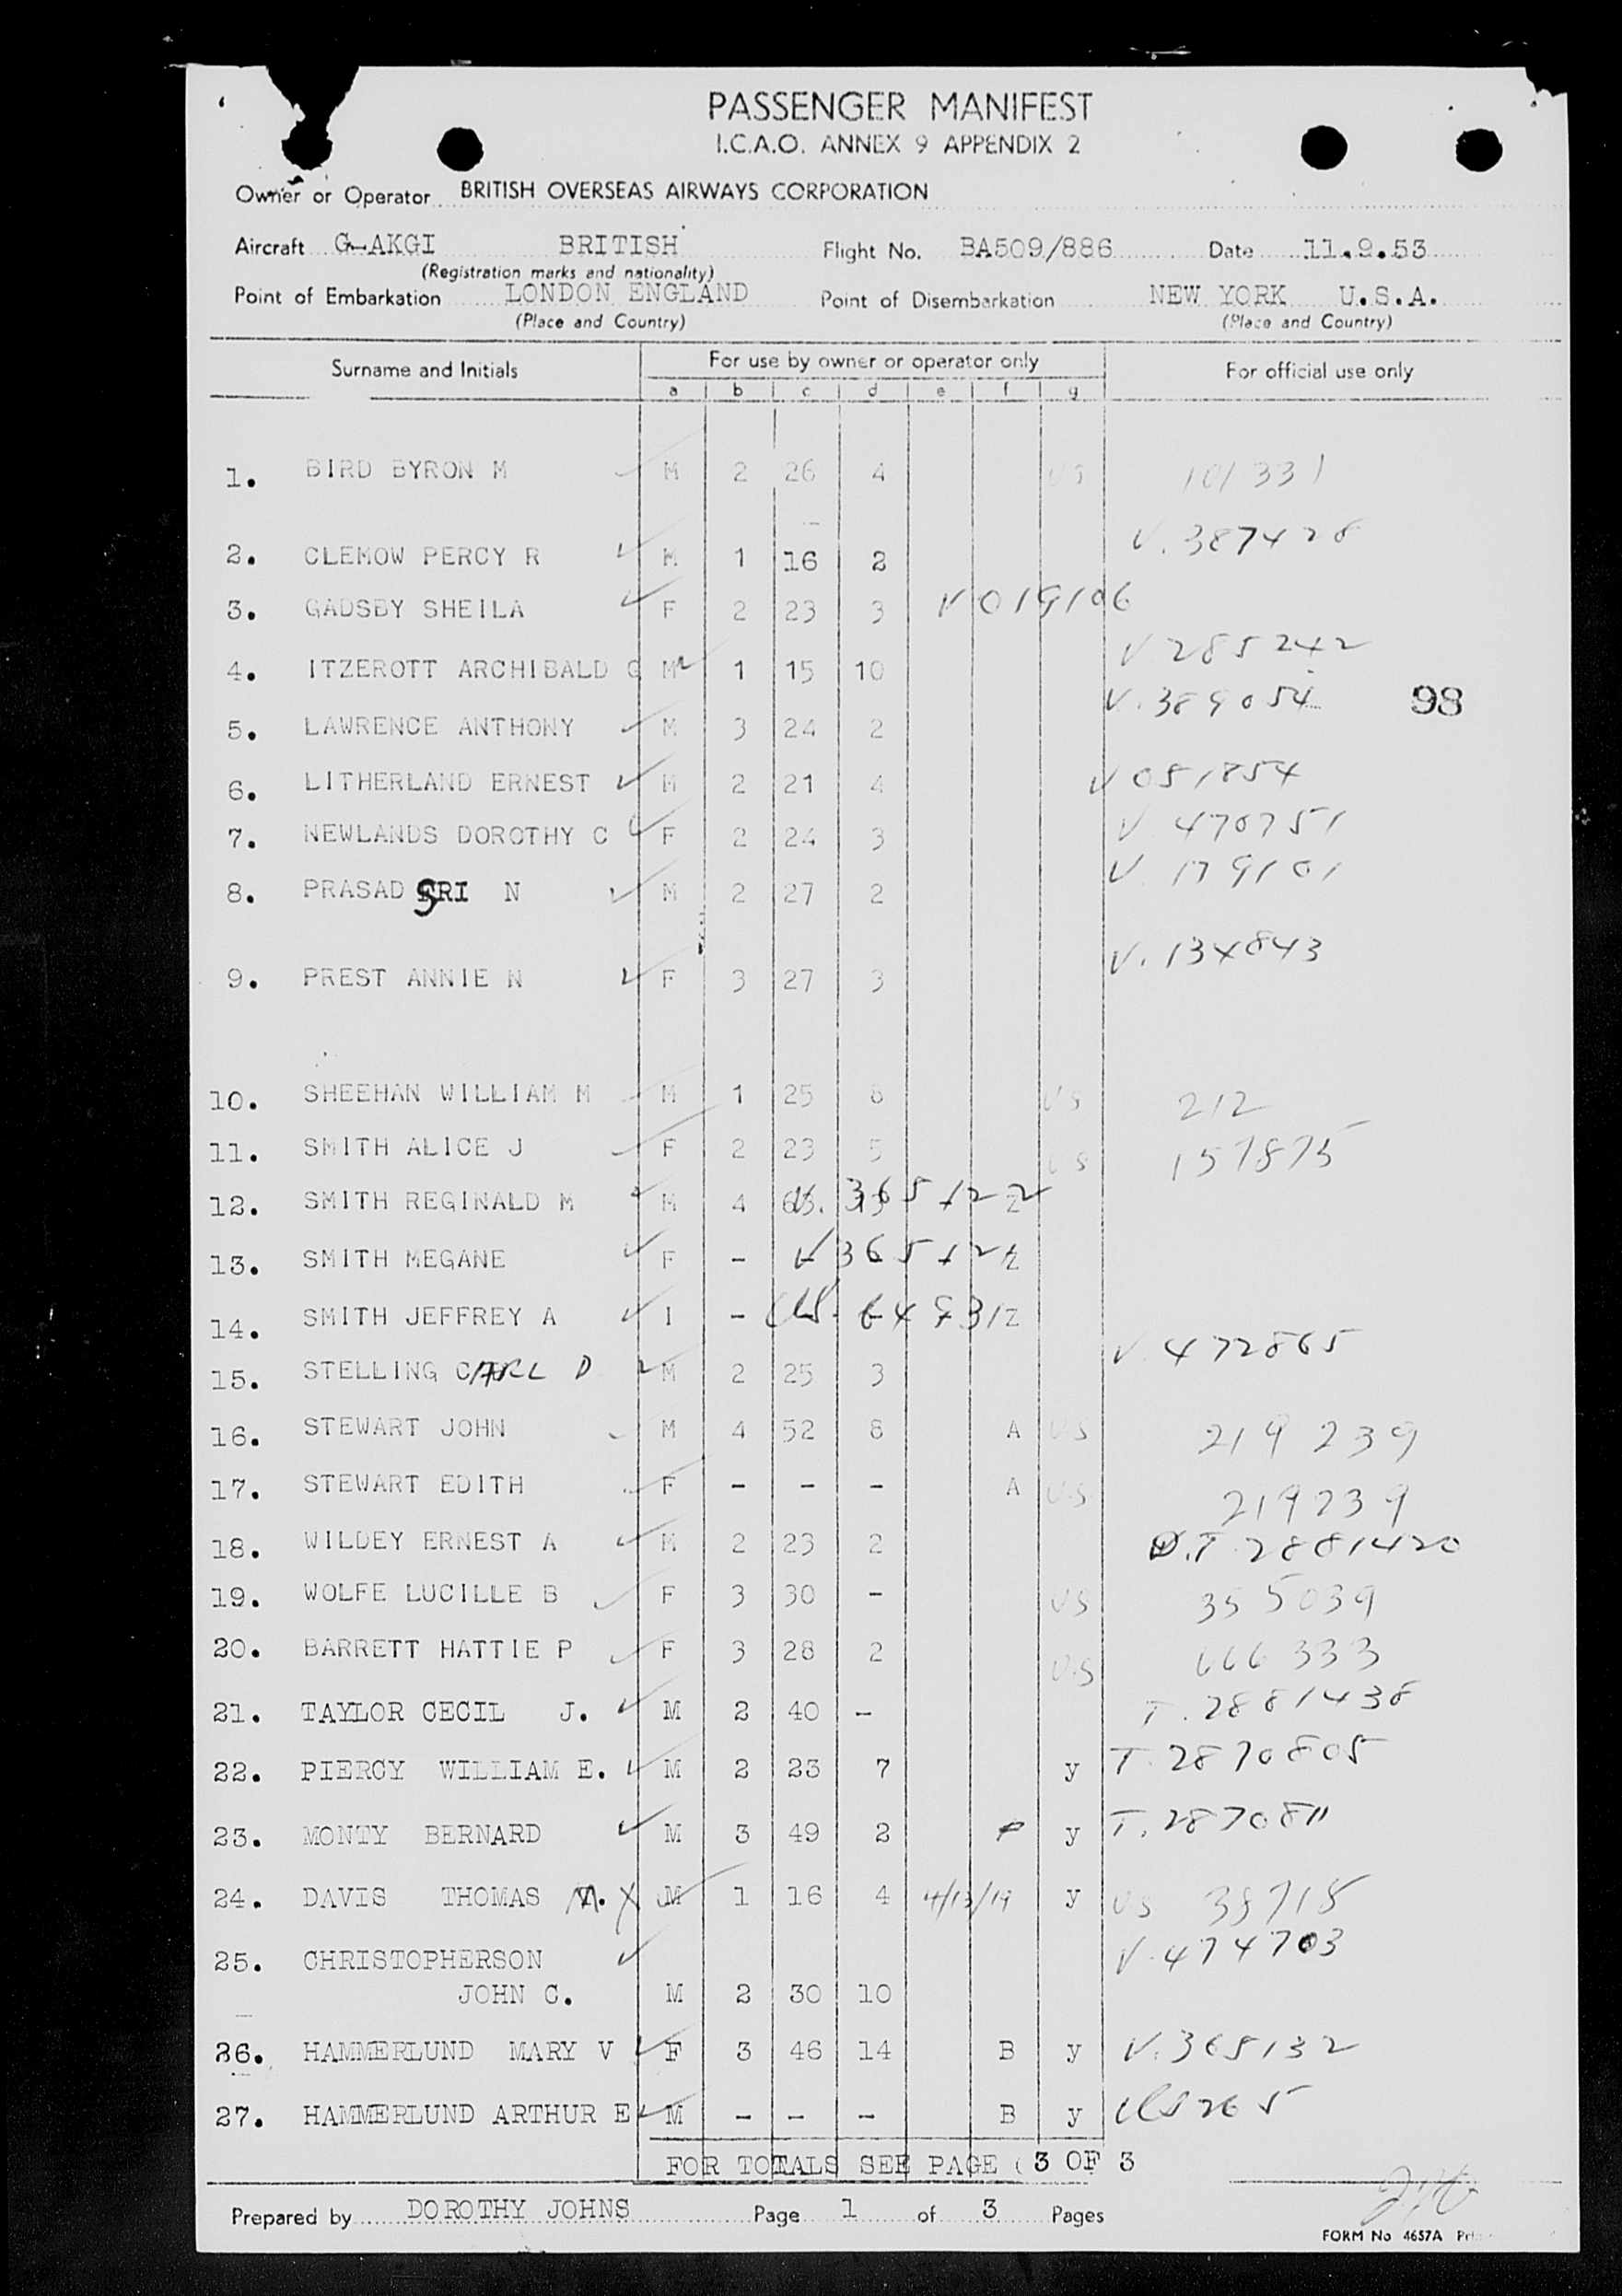 PASSENGER MANIFEST
I.C.A.O. ANNEX 9 APPENDIX 2
Owner or Operator BRITISH OVERSEAS AIRWAYS CORPORATION
Aircraft G-AKGI BRITISH Flight No. BA509/886 Date 11.9.53
(Registration marks and nationality)
Point of Embarkation LONDON ENGLAND Point of Disembarkation NEW YORK U.S.A.
(Place and Country) (Place and Country)
Surname and Initials For use by owner or operator only For official use only
a b c d e f g
1. BIRD BYRON M M 2 26 4 US 101331
2. CLEMOW PERCY R M 1 16 2 V.387428
3. GADSBY SHEILA F 2 23 3 V019106
4. ITZEROTT ARCHIBALD G M 1 15 10 V285242
5. LAWRENCE ANTHONY M 3 24 2 V.389054 98
6. LITHERLAND ERNEST M 2 21 4 V051854
7. NEWLANDS DOROTHY C F 2 24 3 V 470751
8. PRASAD SRI N M 2 27 2 V 179101
9. PREST ANNIE N F 3 27 3 V.134843
10. SHEEHAN WILLIAM M M 1 25 8 US 212
11. SMITH ALICE J F 2 23 5 US 157875
12. SMITH REGINALD M M 4 V.365122 Z
13. SMITH MEGANE F - V365121 Z
14. SMITH JEFFREY A I - Z
15. STELLING CARL D M 2 25 3 V 472865
16. STEWART JOHN M 4 52 8 A US 219239
17. STEWART EDITH F - - - A US 219239
18. WILDEY ERNEST A M 2 23 2 T.2881420
19. WOLFE LUCILLE B F 3 30 - US 355039
20. BARRETT HATTIE P F 3 28 2 US 666333
21. TAYLOR CECIL J. M 2 40 - T.2881438
22. PIERCY WILLIAM E. M 2 23 7 y T.2870805
23. MONTY BERNARD M 3 49 2 y T.2870811
24. DAVIS THOMAS M. X M 1 16 4 4/13/19 y US 39715
25. CHRISTOPHERSON V.474703
JOHN C. M 2 30 10
26. HAMMERLUND MARY V F 3 46 14 B y V.365132
27. HAMMERLUND ARTHUR E M - - - B y
FOR TOTALS SEE PAGE ( 3 OF 3
Prepared by DOROTHY JOHNS Page 1 of 3 Pages
FORM No 4657A